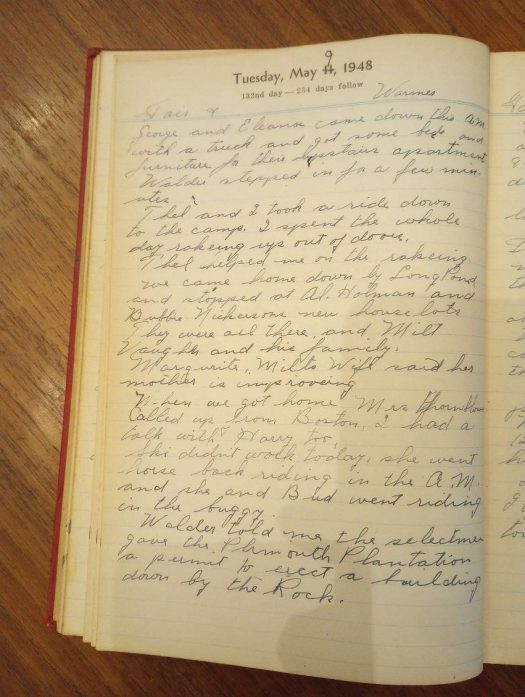 9
Tuesday, May 11, 1948
132nd day — 234 days follow
Fair & Warmer
George and Eleanor came down this A.M.
with a truck and got some beds and
furniture for there upstairs apartment
Walder stepped in for a few min-
utes.
Thel and I took a ride down
to the camp. I spent the whole
day rakeing up out of doors.
Thel helped me on the rakeing.
we came home down by Long Pond
and stopped at Al. Holman and
Bubbie Nickersons new house lots
They were all there and Milt
Vaughn and his family.
Margurite, Milts Wife said her
mother is improoving
When we got home Mrs
called up from Boston, I had a
talk with Harry too,
didn't walk today, she went
horse back riding in the A.M.
and she and Bud went riding
in the buggy.
Walder told me the selectmen
gave the Plymouth Plantation
a permit to erect a building
down by the Rock.